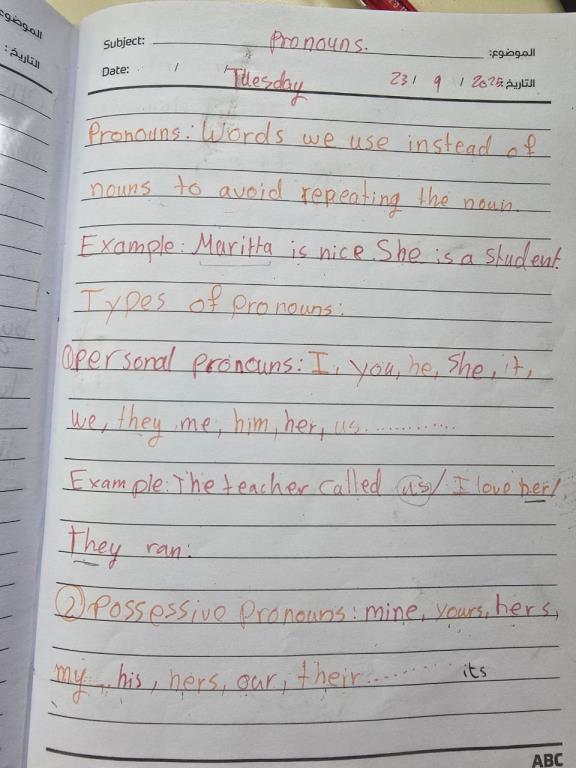 الموضوع
التاريخ :
Subject: Pronouns. الموضوع:
Date: / / Tuesday 23 / 9 / 2025 التاريخ:
Pronouns: Words we use instead of
nouns to avoid repeating the noun.
Example: Maritta is nice. She is a student.
Types of pronouns:
① personal pronouns: I, you, he, She, it,
we, they me, him, her, us............
Example: The teacher called us / I love her/
They ran.
② Possessive pronouns: mine, yours, hers,
my, his, hers, our, their......... its
ABC